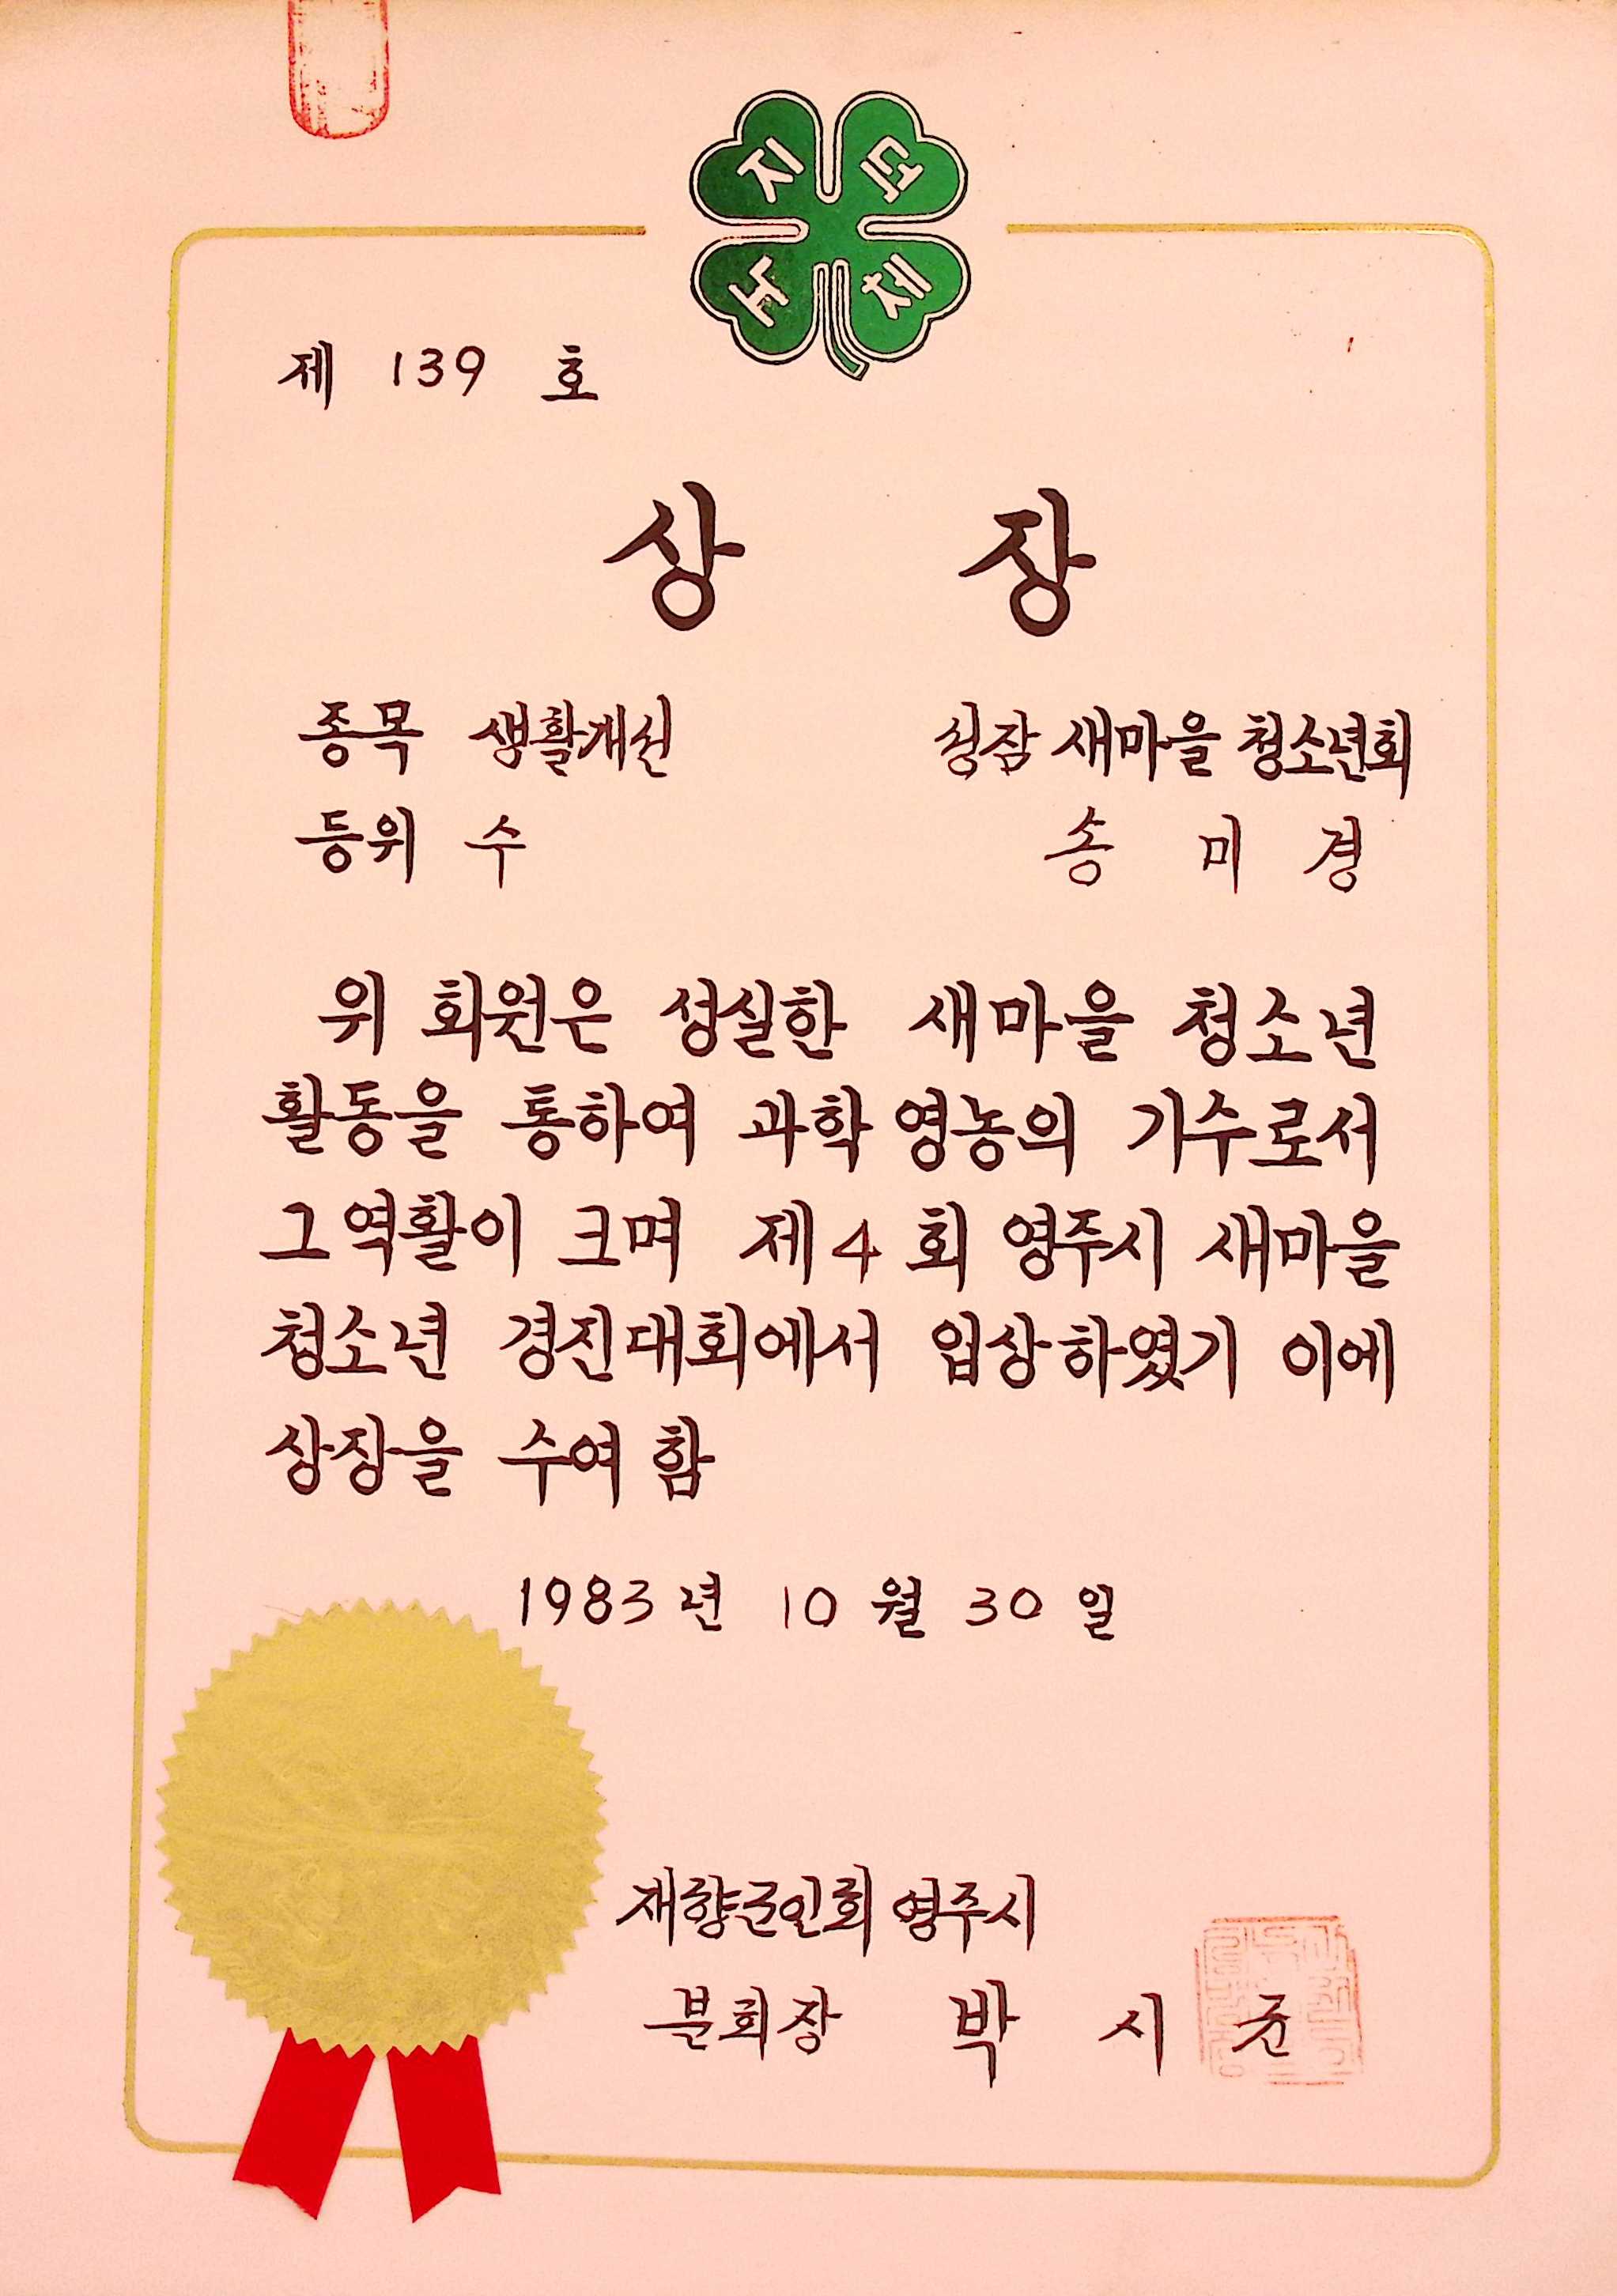 지 덕
노 체
제 139 호
상 장
종목 생활개선
성잠 새마을 청소년회
등위 수
송 미 경
위 회원은 성실한 새마을 청소년
활동을 통하여 과학 영농의 기수로서
그 역활이 크며 제 4 회 영주시 새마을
청소년 경진대회에서 입상하였기 이에
상장을 수여 함
1983 년 10 월 30 일
재향군인회 영주시
분회장 박 시 균